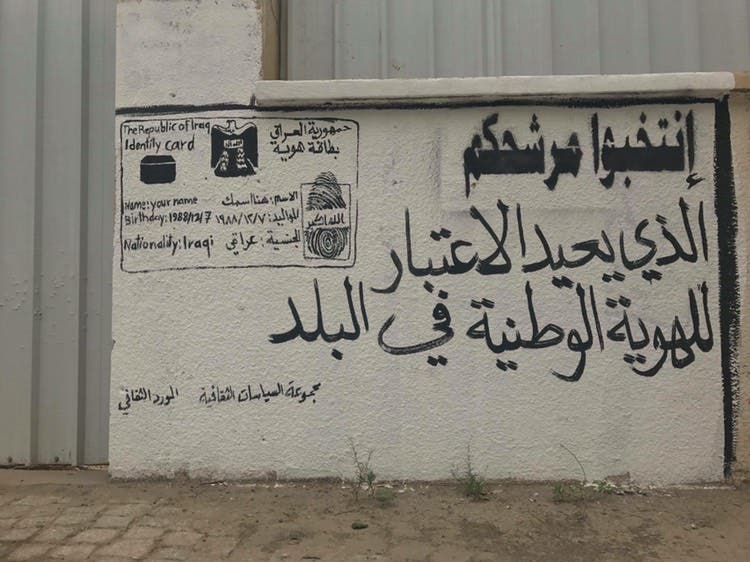 The Republic of Iraq
Identity card
جمهورية العراق
بطاقة هوية
Name: your name
الاسم: هنا اسمك
Birthday: 1988/12/7
المواليد: ١٩٨٨/١٢/٧
Nationality: Iraqi
الجنسية: عراقي
الله اكبر
إنتخبوا مرشحكم
الذي يعيد الاعتبار
للهوية الوطنية في البلد
مجموعة السياسات الثقافية المورد الثقافي